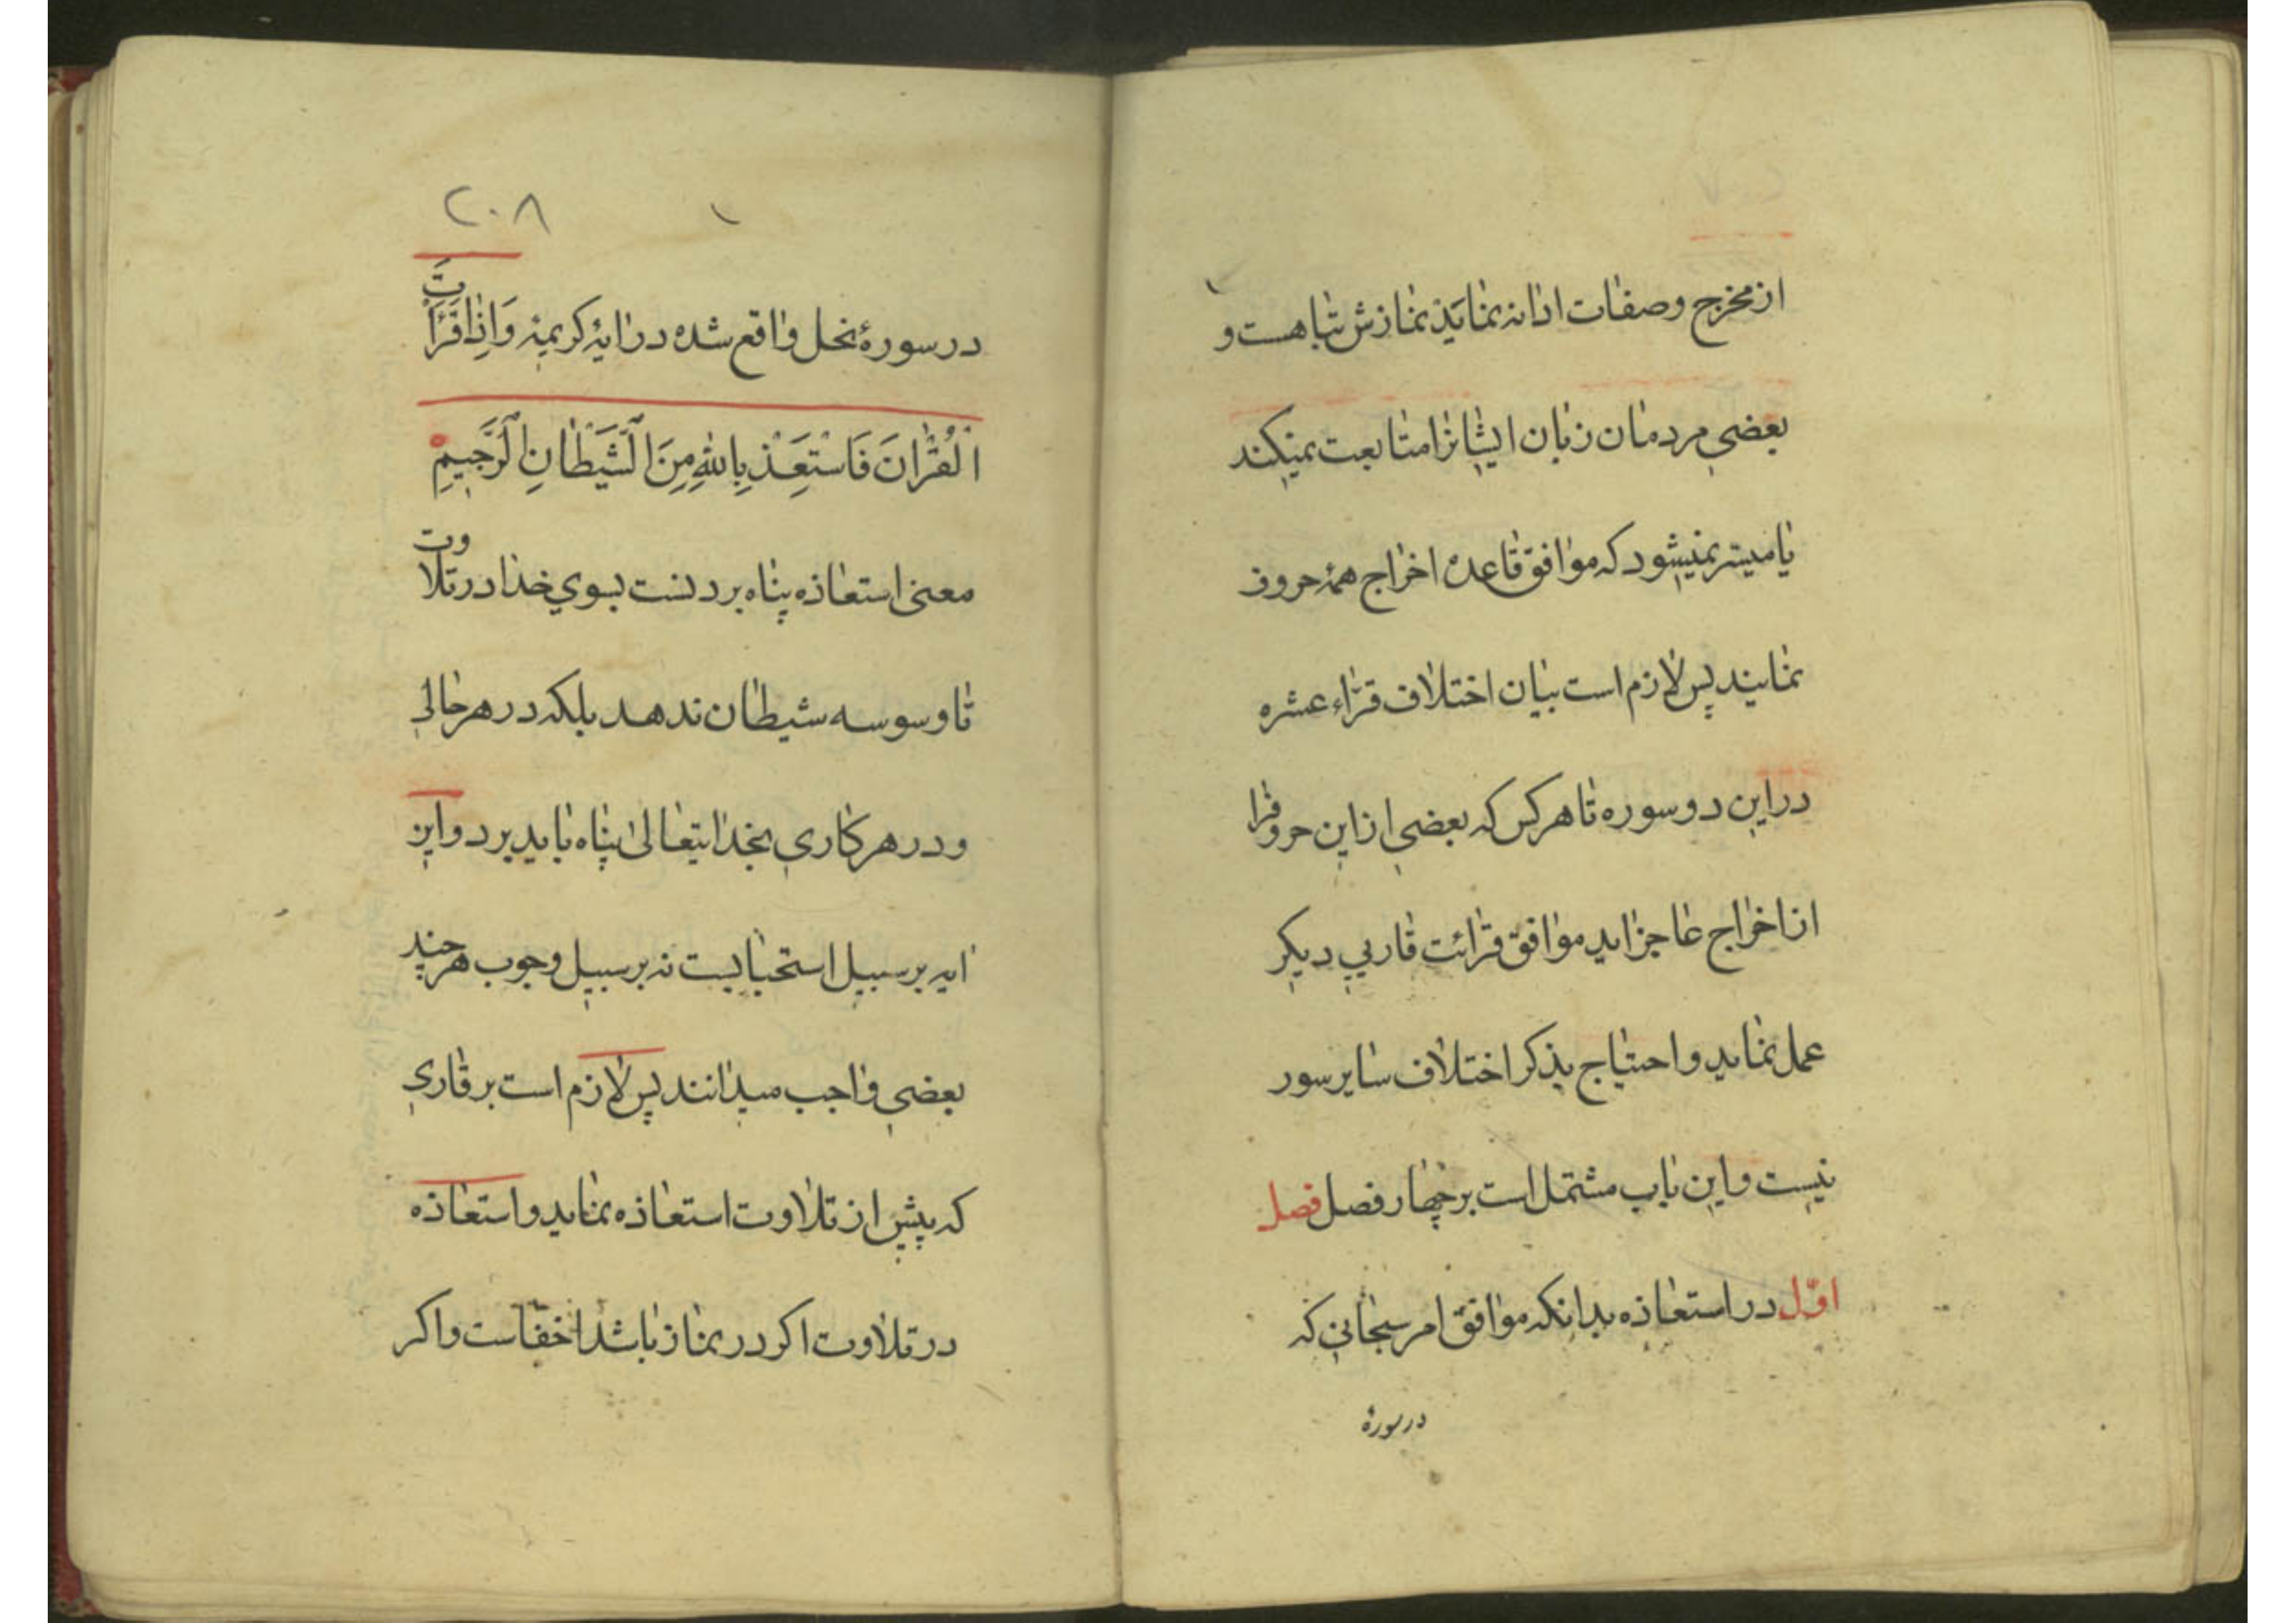 از مخرج و صفات ادا نه نماید نمازش تباهست و
بعضی مردمان زبان ایشانرا متابعت نمیکند
یا میسر نمیشود که موافق قاعدهٔ اخراج همهٔ حروف
نمایند پس لازم است بیان اختلاف قرّاء عشره
در این دو سوره تا هر کس که بعضی از این حروفرا
از اخراج عاجز اید موافق قرائت قاریی دیکر
عمل نماید و احتیاج بذکر اختلاف سایر سور
نیست و این باب مشتمل است بر چهار فصل فصل
اوّل در استعاذه بدانکه موافق امر سبحانی که
در سورهٔ
٢٠٨
در سورهٔ نحل واقع شده در ایهٔ کریمهٔ وَاِذٰا قَرَأْتَ
الْقُرْاٰنَ فَاسْتَعِذْ بِاللّٰهِ مِنَ الشَّيْطٰانِ الرَّجيمِ
معنی استعاذه پناه بردنست بسوی خدا در تلاوت
تا وسوسه شیطان ندهد بلکه در هر حالی
و در هر کاری بخدایتعالی پناه باید برد و این
ایه بر سبیل استحبابیست نه بر سبیل وجوب هر چند
بعضی واجب میدانند پس لازم است بر قاری
که پیش از تلاوت استعاذه نماید و استعاذه
در تلاوت اکر در نماز باشد اخفاست و اکر